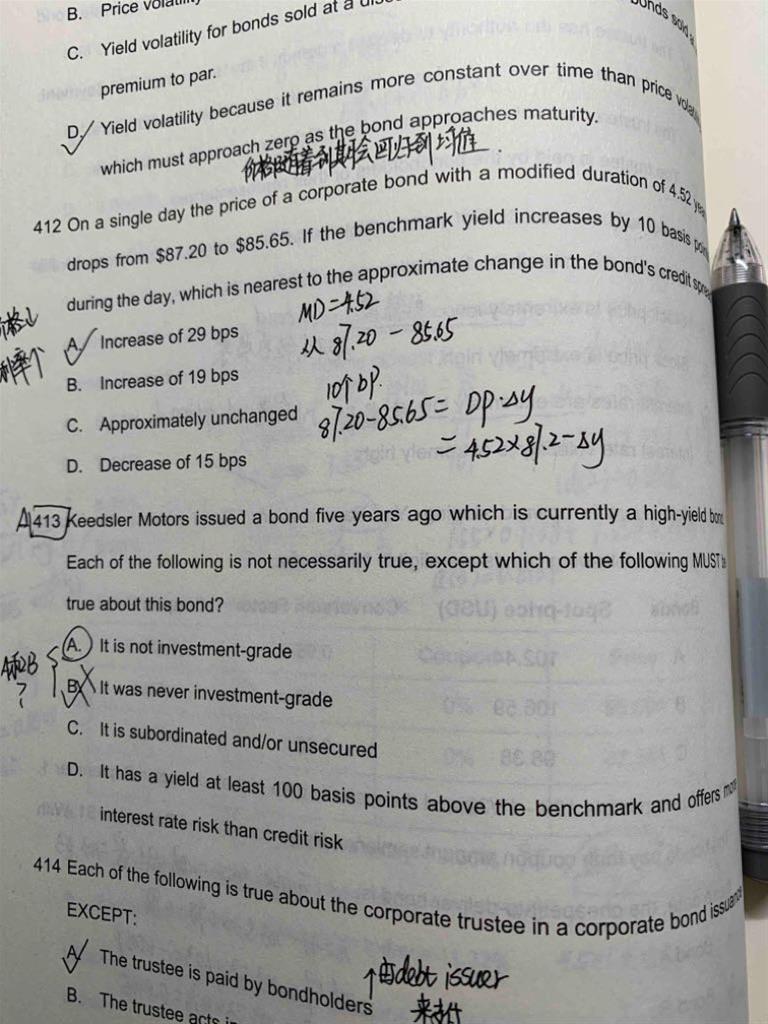 B. Price
C. Yield volatility for bonds sold at a
bonds sold
premium to par.
D. Yield volatility because it remains more constant over time than price
which must approach zero as the bond approaches maturity.
价格随着到期会回归到均值.
412 On a single day the price of a corporate bond with a modified duration of 4.52
drops from $87.20 to $85.65. If the benchmark yield increases by 10 basis
during the day, which is nearest to the approximate change in the bond's credit
价格↓
利率个
MD=4.52
A. Increase of 29 bps
从 87.20 - 85.65
B. Increase of 19 bps
10个bp.
C. Approximately unchanged
87.20-85.65= DP·Δy
= 4.52×87.2-Δy
D. Decrease of 15 bps
A 413 Keedsler Motors issued a bond five years ago which is currently a high-yield bond
Each of the following is not necessarily true, except which of the following MUST
true about this bond?
A. It is not investment-grade
A和B
?
B. It was never investment-grade
C. It is subordinated and/or unsecured
D. It has a yield at least 100 basis points above the benchmark and offers more
interest rate risk than credit risk
414 Each of the following is true about the corporate trustee in a corporate bond
EXCEPT:
A. The trustee is paid by bondholders
↑由debt issuer
来支付
B. The trustee acts